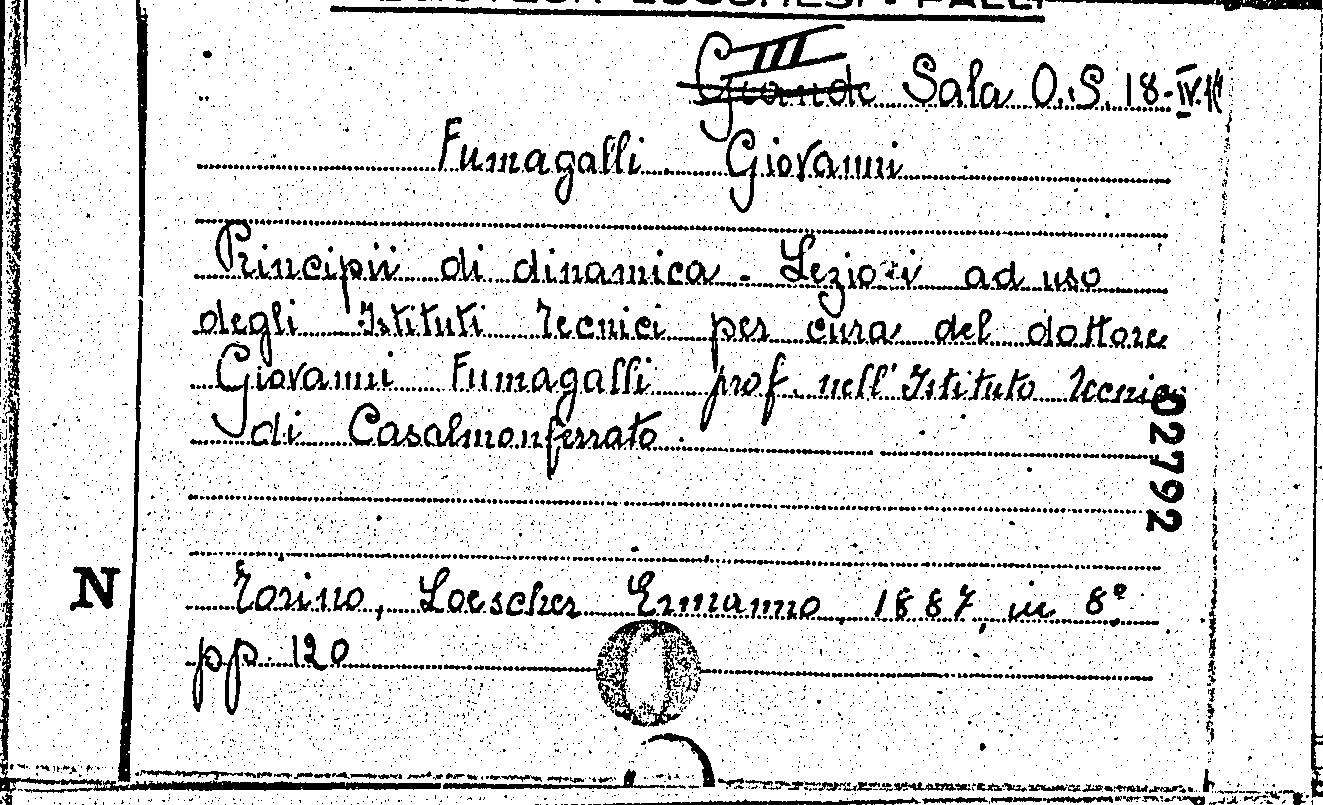 III
Grande Sala O.S. 18-IV.
Fumagalli Giovanni
Principii di dinamica - Lezioni ad uso
degli Istituti Tecnici per cura del dottore
Giovanni Fumagalli prof. nell'Istituto Tecnico
di Casalmonferrato.
02792
N
Torino, Loescher Ermanno, 1887, in 8º.
pp. 120